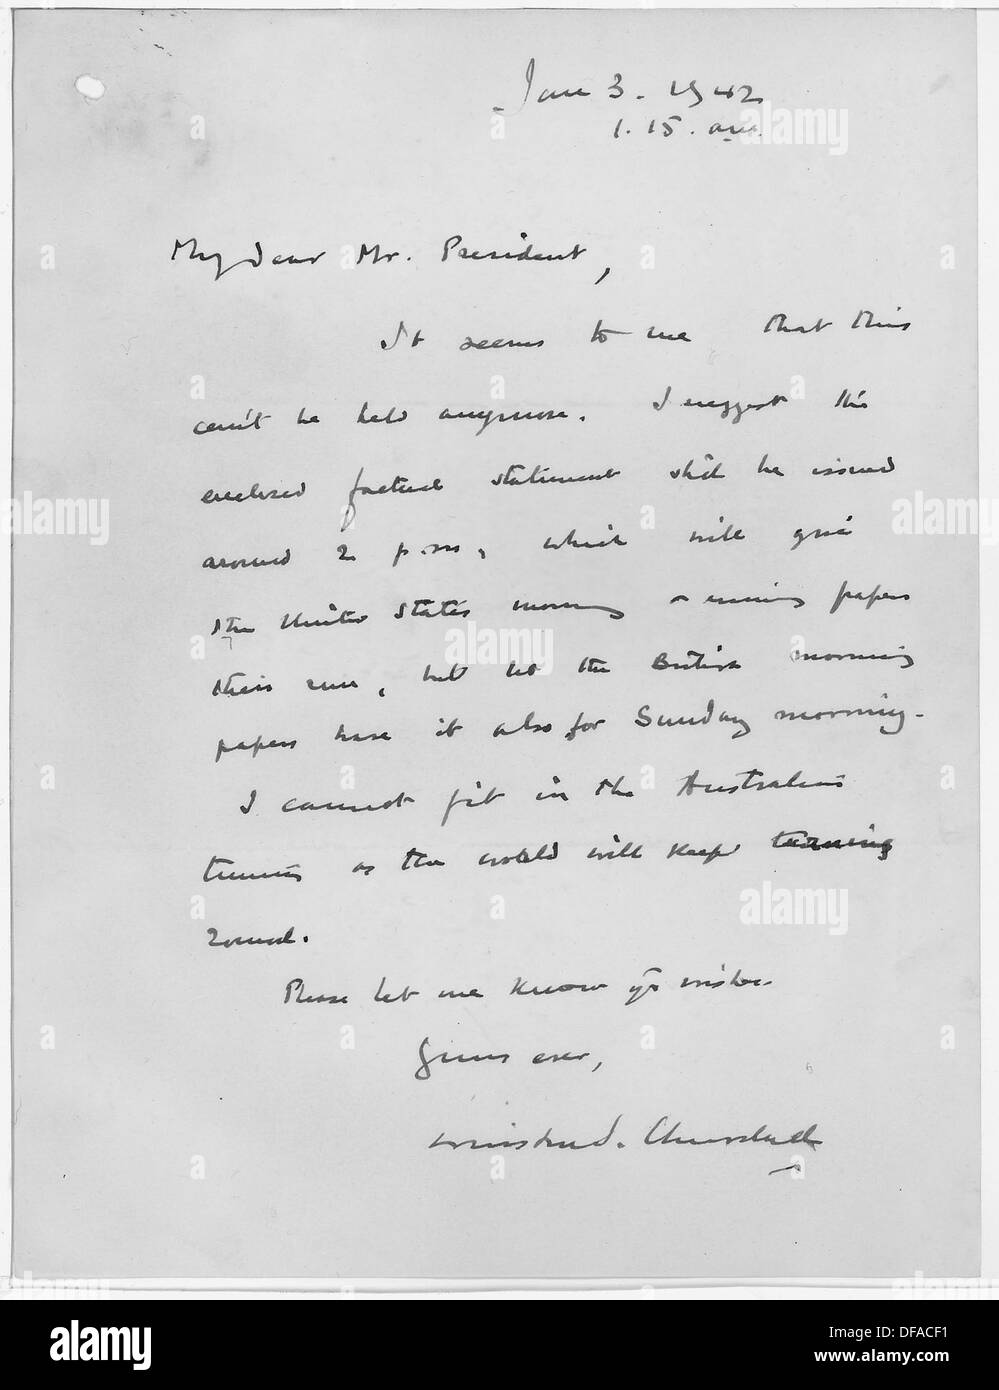 Jan 3. 1942
1.15. am.
My dear Mr. President,
It seems to me that this
can't be held anymore. I suggest the
enclosed factual statement shd be issued
around 2 p.m., which will give
the United States morning & evening papers
their run, but let the British morning
papers have it also for Sunday morning.
I cannot fit in the Australian
timing as the world will keep turning
round.
Please let me know yr wishes.
Yours ever,
Winston S. Churchill
alamy
alamy stock photo
DFACF1
www.alamy.com